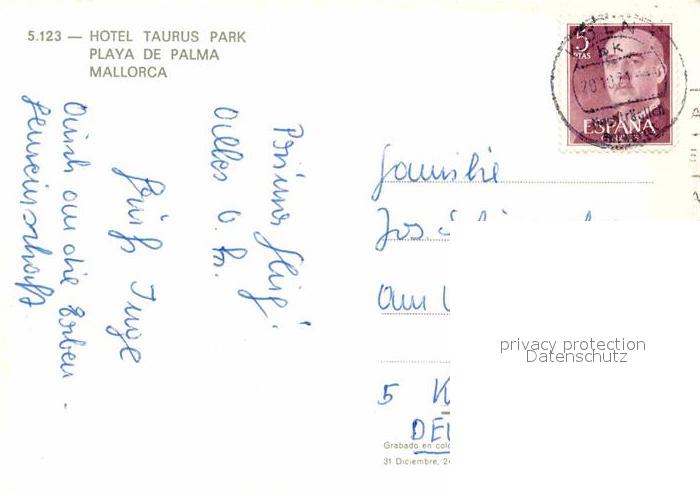 5.123 — HOTEL TAURUS PARK
PLAYA DE PALMA
MALLORCA
Prima Flug!
Alles O. K.
Gruß Inge
Auch an die Erben
Gemeinschaft
5
PTAS
20.10.71
ESPAÑA
Familie
Jos
Am
5 K
DE
Grabado en colo
31 Diciembre, 24
privacy protection
Datenschutz